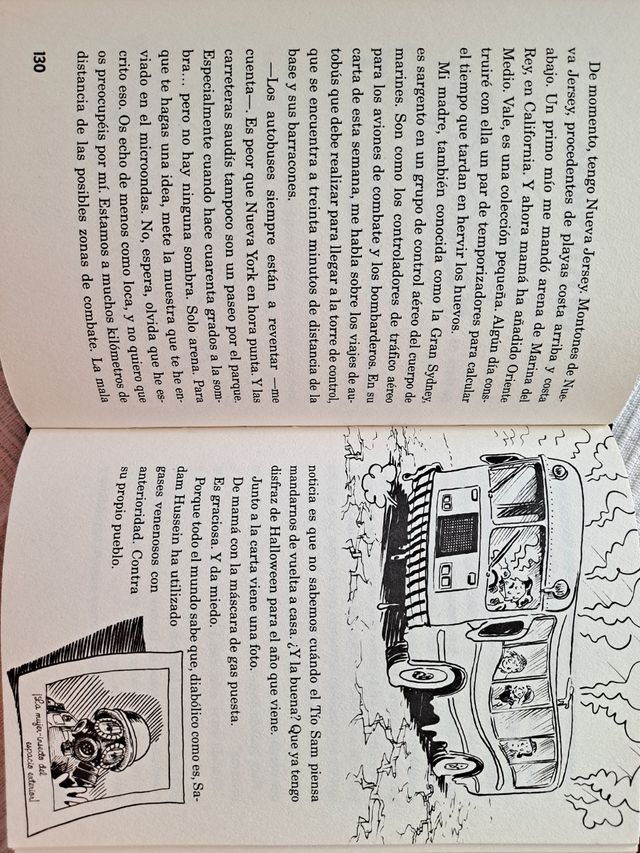 De momento, tengo Nueva Jersey. Montones de Nue-
va Jersey, procedentes de playas costa arriba y costa
abajo. Un primo mío me mandó arena de Marina del
Rey, en California. Y ahora mamá ha añadido Oriente
Medio. Vale, es una colección pequeña. Algún día cons-
truiré con ella un par de temporizadores para calcular
el tiempo que tardan en hervir los huevos.
Mi madre, también conocida como la Gran Sydney,
es sargento en un grupo de control aéreo del cuerpo de
marines. Son como los controladores de tráfico aéreo
para los aviones de combate y los bombarderos. En su
carta de esta semana, me habla sobre los viajes de au-
tobús que debe realizar para llegar a la torre de control,
que se encuentra a treinta minutos de distancia de la
base y sus barracones.
—Los autobuses siempre están a reventar —me
cuenta—. Es peor que Nueva York en hora punta. Y las
carreteras saudís tampoco son un paseo por el parque.
Especialmente cuando hace cuarenta grados a la som-
bra... pero no hay ninguna sombra. Solo arena. Para
que te hagas una idea, mete la muestra que te he en-
viado en el microondas. No, espera, olvida que he es-
crito eso. Os echo de menos como loca, y no quiero que
os preocupéis por mí. Estamos a muchos kilómetros de
distancia de las posibles zonas de combate. La mala
130
noticia es que no sabemos cuándo el Tío Sam piensa
mandarnos de vuelta a casa. ¿Y la buena? Que ya tengo
disfraz de Halloween para el año que viene.
Junto a la carta viene una foto.
De mamá con la máscara de gas puesta.
Es graciosa. Y da miedo.
Porque todo el mundo sabe que, diabólico como es, Sa-
dam Hussein ha utilizado
gases venenosos con
anterioridad. Contra
su propio pueblo.
¡La mujer-insecto del
espacio exterior!